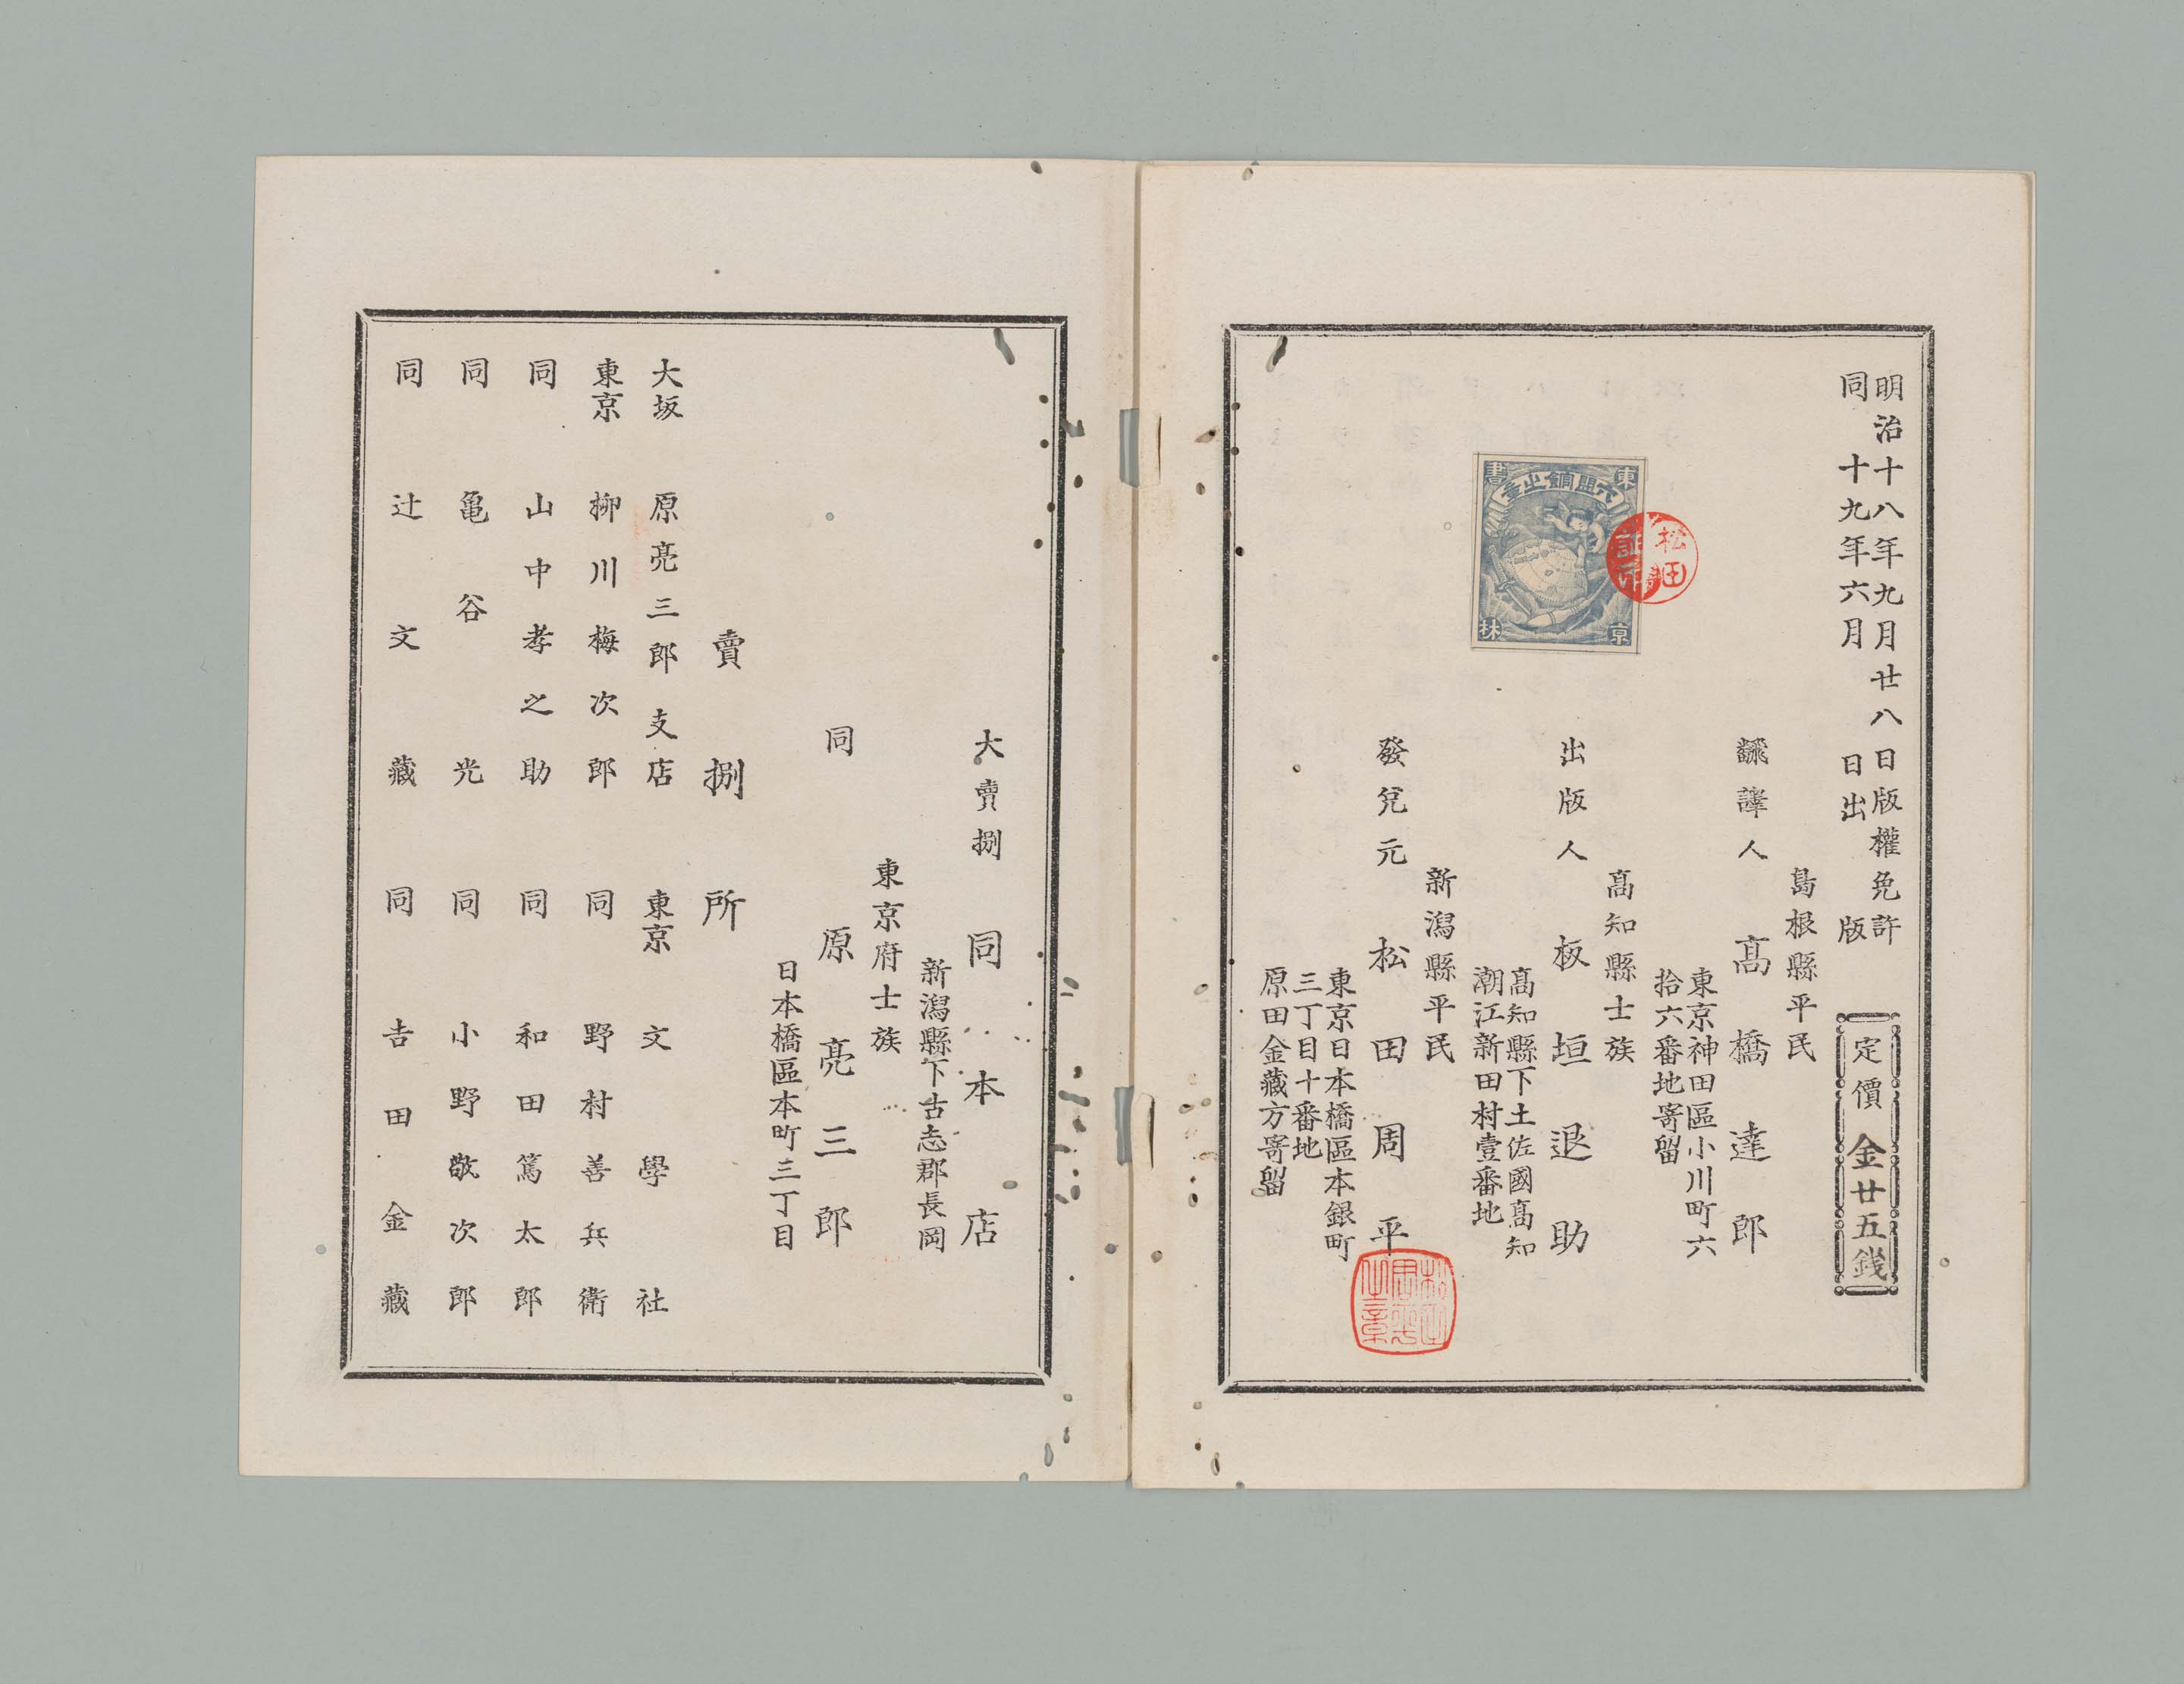 明治十八年九月廿八日版權免許
同十九年六月　日出版
定價金廿五銭
島根縣平民
飜譯人　髙橋達郎
東京神田區小川町六
拾六番地寄留
髙知縣士族
出版人　板垣退助
髙知縣下土佐國髙知
潮江新田村壹番地
新潟縣平民
發兌元　松田周平
東京日本橋區本銀町
三丁目十番地
原田金藏方寄留
東京書林
六盟館出
松田証印
大賣捌　同本店
新潟縣下古志郡長岡
東京府士族
同　原亮三郎
日本橋區本町三丁目
賣捌所
大坂　原亮三郎支店
東京　文學社
東京　柳川梅次郎
同　野村善兵衛
同　山中孝之助
同　和田篤太郎
同　亀谷光
同　小野敬次郎
同　辻文藏
同　吉田金藏